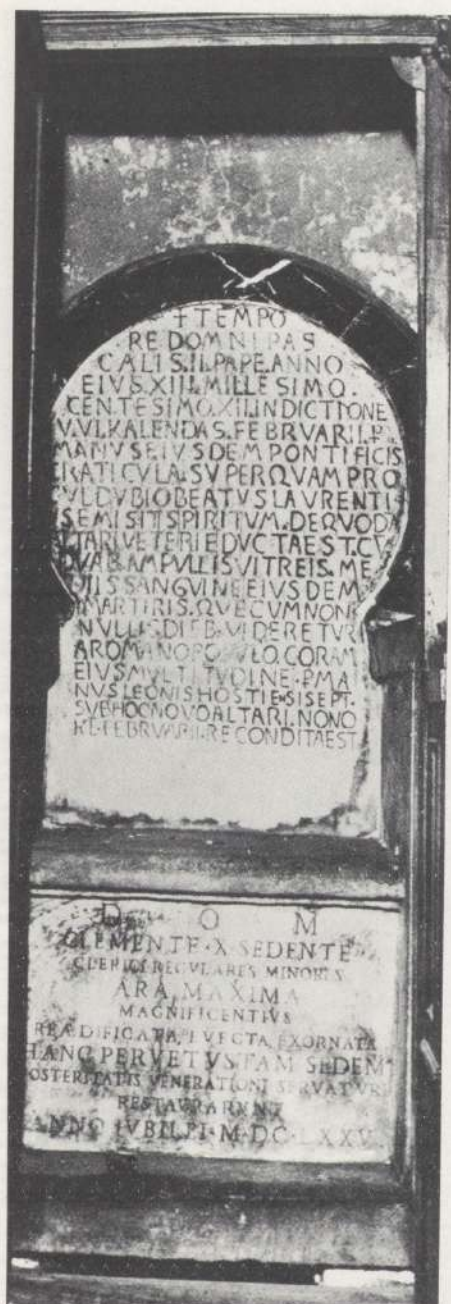 ✝ TEMPO
RE DOMNI PAS
CALIS.II.PAPE.ANNO
EIVS.XIII.MILLESIMO.
CENTESIMO.XII.INDICTIONE
V.VI.KALENDAS.FEBRVARII.P
MANVS EIVSDEM PONTIFICIS
CRATICVLA.SVPER QVAM PRO
CVL DVBIO BEATVS LAVRENTI
SEMISIT SPIRITVM.DE QVODA
ALTARI VETERI EDVCTA EST.CV
DVAB.AMPVLLIS VITREIS.ME
DIIS SANGVINE EIVSDEM
MARTIRIS.QVE CVM NON
NVLLIS DIEB.VIDERETVR
A ROMANO POPVLO.CORAM
EIVS MVLTITVDINE.P MA
NVS LEONIS HOSTIESIS EPT.
SVB HOC NOVO ALTARI.NONO
KL.FEBRVARII.RECONDITA EST
D O M
CLEMENTE·X·SEDENTE
CLERICI REGVLARES MINORES
ARA MAXIMA
MAGNIFICENTIVS
REÆDIFICATA, EVECTA, EXORNATA
HANC PERVETVSTAM SEDEM
OSTERITATIS VENERATIONI SERVATVRI
RESTAVRARVNT
ANNO IVBILEI·M·DC·LXXV